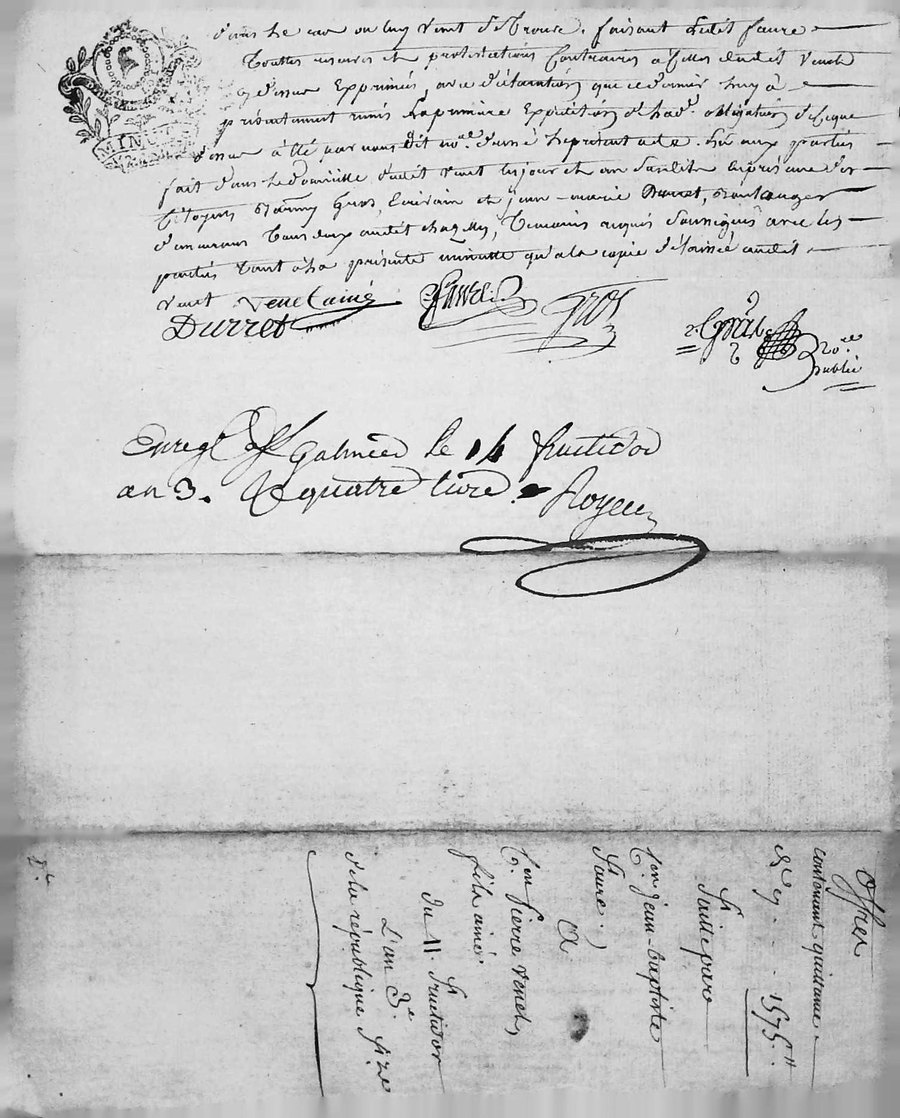 MINUTE
dans le cas ou luy venet se trouve. faisant ledit faure
touttes reserves et protestations contraires à celles dudit venet
cy dessus exprimées, avec déclaration que ce dernier luy à
présentement remis la première expédition obligation
dessus à été par nous dit no.re donné lecture aux parties
fait dans le domicille dudit venet les jour et an susdits en présence des
citoyens gros, et jean-marie Durret, Boulanger
demeurans tous deux audit témoins requis soussignés avec les
parties tant à la présente minutte qu'à la copie délaissée audit
venet Venet ainé
Durret faure gros
no.re
Public
Enreg.é à Galmier le 14 fructidor
an 3. R quatre livre
offres
contenant quittance
de 1575.tt
faitte par
C.en jean-baptiste
faure.
a
C.en pierre venet,
fils ainé.
du 11. fructidor
l'an 3.e
de la république